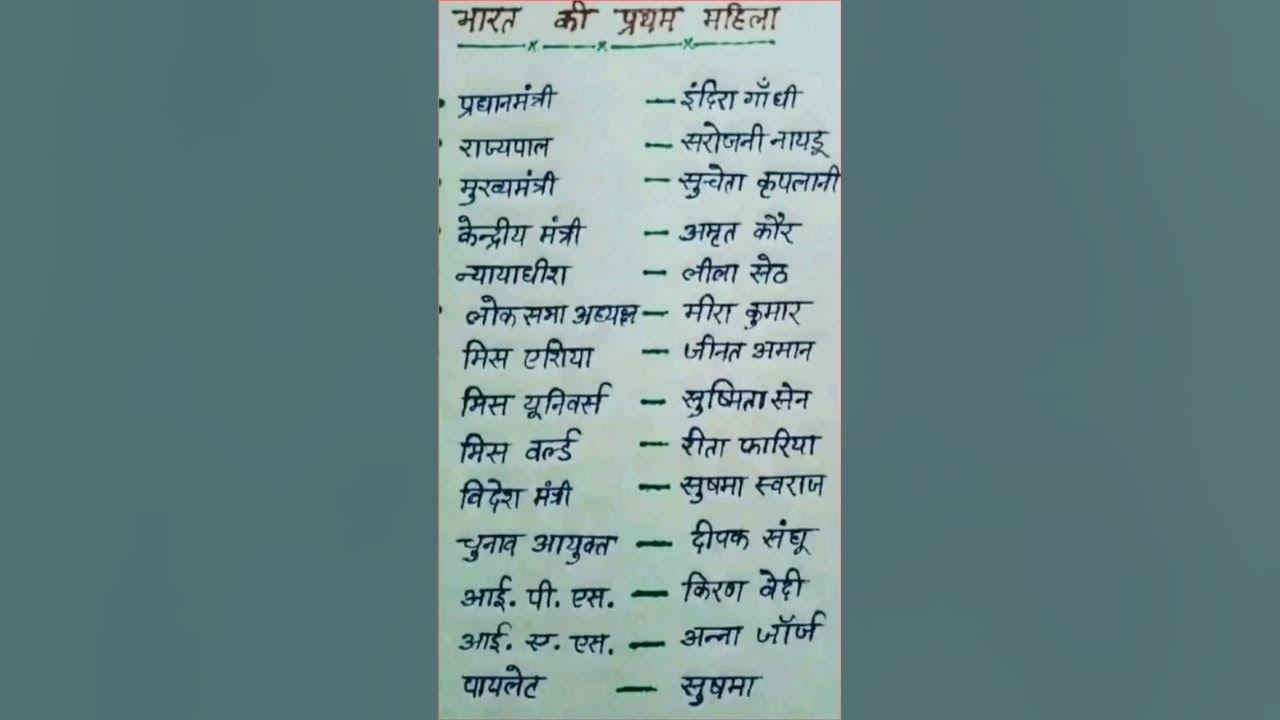 भारत की प्रथम महिला
प्रधानमंत्री — इंदिरा गाँधी
राज्यपाल — सरोजनी नायडू
मुख्यमंत्री — सुचेता कृपलानी
केन्द्रीय मंत्री — अमृत कौर
न्यायाधीश — लीला सेठ
लोकसभा अध्यक्ष — मीरा कुमार
मिस एशिया — जीनत अमान
मिस यूनिवर्स — सुष्मिता सेन
मिस वर्ल्ड — रीता फारिया
विदेश मंत्री — सुषमा स्वराज
चुनाव आयुक्त — दीपक संधू
आई. पी. एस. — किरण वेदी
आई. ए. एस. — अन्ना जॉर्ज
पायलेट — सुषमा